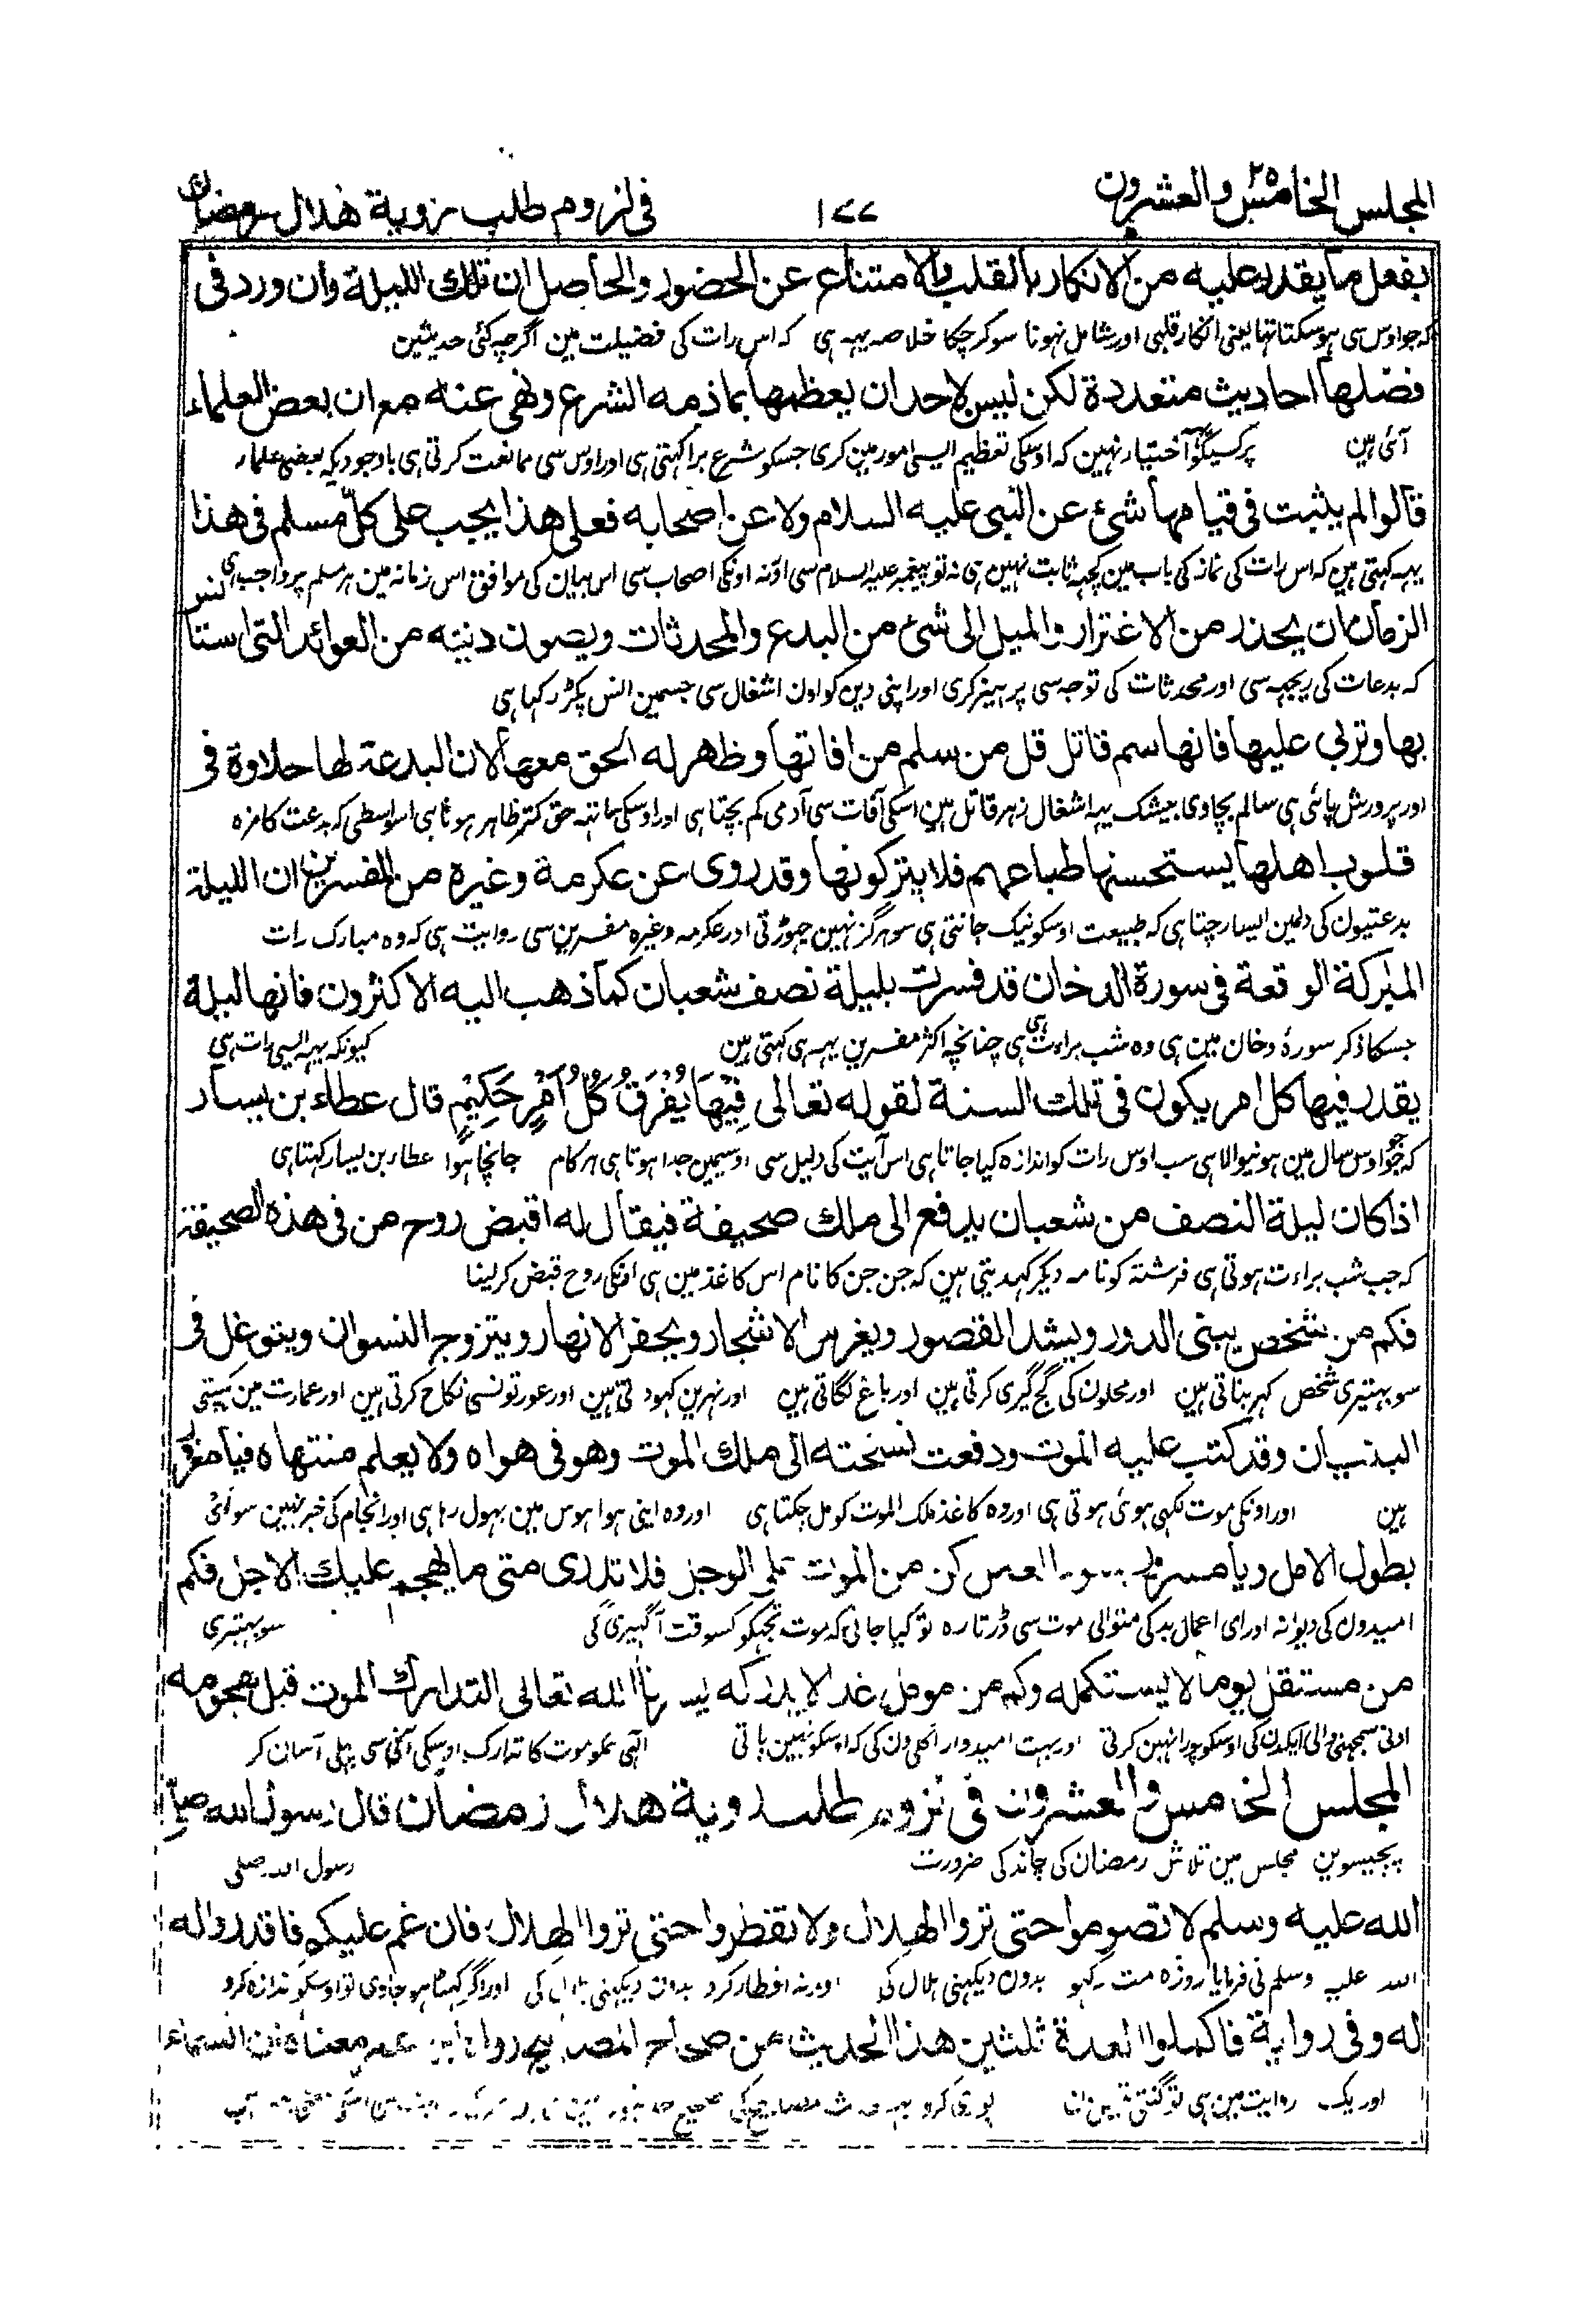 المجلس الخامس والعشرون ٢٥
١٧٧
فی لزوم طلب رویة هلال رمضان
بفعل ما یقدر علیه من الانکار بالقلب والامتناع عن الحضور والحاصل ان تلك اللیلة وان ورد فی
که جو اوس سی هوسکتا تها یعنی انکار قلبی اور شامل نهونا سو کرچکا خلاصه یهه هی که اس رات کی فضیلت مین اگرچه کئی حدیثین
فضلها احادیث متعددة لکن لیس لاحد ان یعظمها بما ذمه الشرع ونهی عنه مع ان بعض العلماء
آئی هین پر کسیکو اختیار نهین که اوسکی تعظیم ایسی امور مین کری جسکو شرع برا کهتی هی اور اوس سی ممانعت کرتی هی باوجودیکه بعضی علماء
قالوا لم یثبت فی قیامها شئ عن النبی علیه السلام ولا عن اصحابه فعلی هذا یجب علی کل مسلم فی هذا
یهه کهتی هین که اس رات کی نماز کی باب مین کچهه ثابت نهین هی نه تو پیغمبر علیه السلام سی اور نه اونکی اصحاب سی اس بیان کی موافق اس زمانه مین هر مسلم پر واجب هی
الزمان ان یحذر من الاغترار والمیل الی شئ من البدع والمحدثات ویصون دینه من العوائد التی استانس
که بدعات کی ریجهه سی اور محدثات کی توجه سی پرهیز کری اور اپنی دین کو اون اشغال سی جسمین انس پکڑ رکها هی
بها وتربی علیها فانها سم قاتل قل من سلم من افاتها وظهر له الحق معها لان البدعة لها حلاوة فی
اور پرورش پائی هی سالم بچاوی بیشک یهه اشغال زهر قاتل هین اسکی آفات سی آدمی کم بچتا هی اور اوسکی ساتهه حق کمتر ظاهر هوتا هی اسواسطی که بدعت کا مزه
قلوب اهلها یستحسنها طباعهم فلا یترکونها وقد روی عن عکرمة وغیره من المفسرین ان اللیلة
بدعتیون کی دلمین ایسا رچتا هی که طبیعت اوسکو نیک جانتی هی سو هرگز نهین چهوڑتی اور عکرمه وغیره مفسرین سی روایت هی که وه مبارک رات
المبرکة الوقعة فی سورة الدخان قد فسرت بلیلة نصف شعبان کما ذهب الیه الاکثرون فانها لیلة
جسکا ذکر سورۂ دخان مین هی وه شب براءت هی چنانچه اکثر مفسرین یهه هی کهتی هین کیونکه یهه ایسی رات هی
یقدر فیها کل امر یکون فی تلك السنة لقوله تعالی فِیْهَا یُفْرَقُ کُلُّ اَمْرٍ حَکِیْمٍ قال عطاء بن یسار
که جو اوس سال مین هونیوالا هی سب اوس رات کو اندازه کیا جاتا هی اس آیت کی دلیل سی اوسیمین جدا هوتا هی هر کام جانچا هوا عطاء بن یسار کهتا هی
اذا کان لیلة النصف من شعبان یدفع الی ملك صحیفة فیقال له اقبض روح من فی هذه الصحیفة
که جب شب براءت هوتی هی فرشته کو نامه دیکر کهدیتی هین که جن جن کا نام اس کاغذ مین هی اونکی روح قبض کرلینا
فکم من شخص یبنی الدور ویشد القصور ویغرس الاشجار ویحفر الانهار ویتزوج النسوان ویتوغل فی
سو بهتیری شخص گهر بناتی هین اور محلون کی گچ گیری کرتی هین اور باغ لگاتی هین اور نهرین کهودتی هین اور عورتونسی نکاح کرتی هین اور عمارت مین کهپتی
البنیان وقد کتب علیه الموت ودفعت نسخته الی ملك الموت وهو فی هواه ولا یعلم منتهاه فیا مغرور
هین اور اونکی موت لکهی هوئ هوتی هی اور وه کاغذ ملك الموت کو مل چکتا هی اور وه اپنی هوا هوس مین بهول رها هی اور انجام کی خبر نهین سو ائ
بطول الامل ویا مسرور العمل کن من الموت علی الوجل فلا تدری متی ما یهجم علیك الاجل فکم
امیدون کی دیوانه اور ای اعمال بد کی متوالی موت سی ڈرتا ره تو کیا جانی که موت تجهکو کسوقت آگهیری گی سو بهتیری
من مستقبل یوما لا یستکمله وکم من مومل غد لا یدرکه یسرنا الله تعالی التدارك الموت قبل هجومه
اور بهت امیدوار اگلی دن کی که اوسکو نهین پاتی الهی همکو موت کا تدارک اوسکی آنی سی پهلی آسان کر
المجلس الخامس والعشرون فی لزوم طلب رویة هلال رمضان قال رسول الله صلی
پچیسوین مجلس مین تلاش رمضان کی چاند کی ضرورت رسول الله صلی
الله علیه وسلم لا تصوموا حتی تروا الهلال ولا تفطروا حتی تروا الهلال فان غم علیکم فاقدروا له
الله علیه وسلم نی فرمایا روزه مت رکهو بدون دیکهنی هلال کی اور نه افطار کرو بدون دیکهنی هلال کی اور اگر گهٹا هو جاوی تو اوسکو اندازه کرو
له وفی روایة فاکملوا العدة ثلثین هذا الحدیث من صحاح المصابیح رواه ابن عمر معناه ان السماء
اور یک روایت مین هی تو گنتی تیس پوری کرو یهه حدیث مصابیح کی صحیح